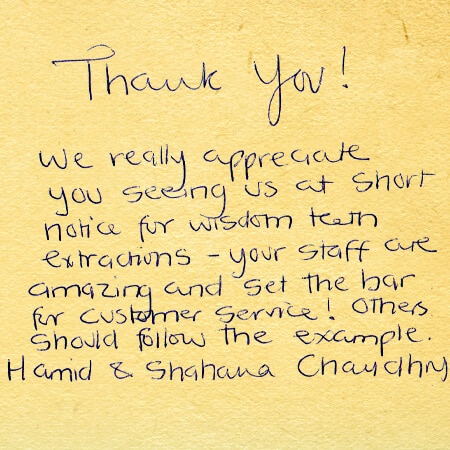 Thank You!
We really appreciate
you seeing us at short
notice for wisdom teeth
extractions - your staff are
amazing and set the bar
for customer service! Others
should follow the example.
Hamid & Shahana Chaudhry